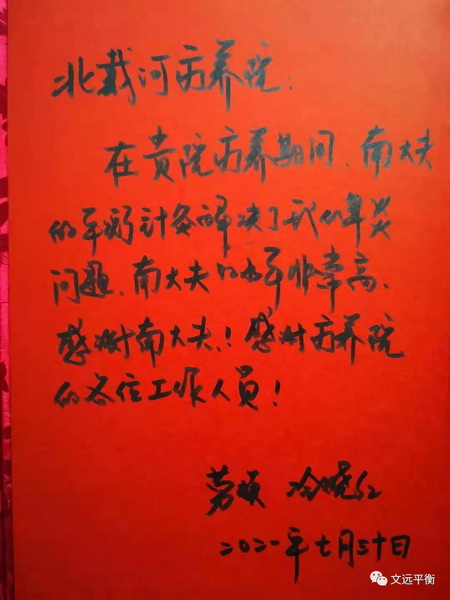 北戴河疗养院:
在贵院疗养期间、南大夫
的平衡针灸解决了我的鼻炎
问题、南大夫的水平非常高、
感谢南大夫!感谢疗养院
的各位工作人员!
冷晓红
二〇二一年七月三十日
文远平衡